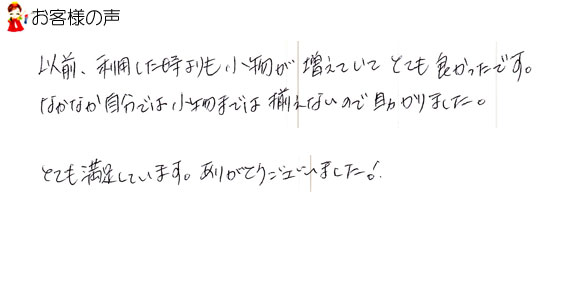 お客様の声
以前、利用した時よりも小物が増えていてとても良かったです。
なかなか自分では小物までは揃えないので助かりました。
とても満足しています。ありがとうございました!